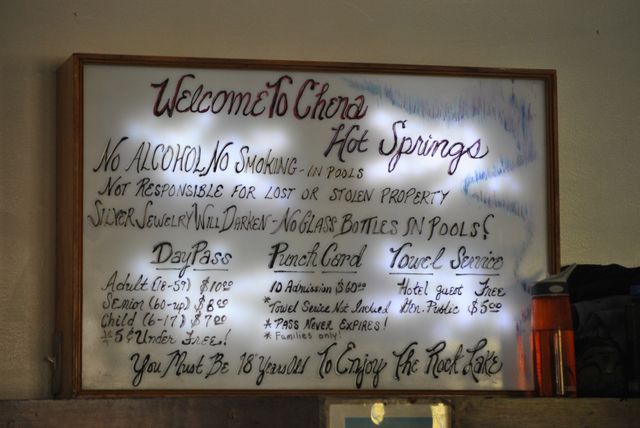 Welcome To Chena
Hot Springs
No ALCOHOL No Smoking - IN POOLS
Not Responsible for lost or stolen property
Silver Jewelry Will Darken - No Glass Bottles IN Pools!
Day Pass
Adult (18-59) $10.00
Senior (60-up) $8.00
Child (6-17) $7.00
*5 & Under Free!
Punch Card
10 Admission $60.00
*Towel Serice Not Inclued
* PASS NEVER EXPIRES!
* Families only!
Towel Service
Hotel guest Free
Gen. Public $5.00
You Must Be 18 Years Old To Enjoy The Rock Lake